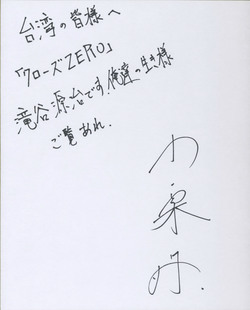 台湾の皆様へ
「クローズZERO」
滝谷源治です。俺達の生き様
ご覧あれ。
小栗旬.